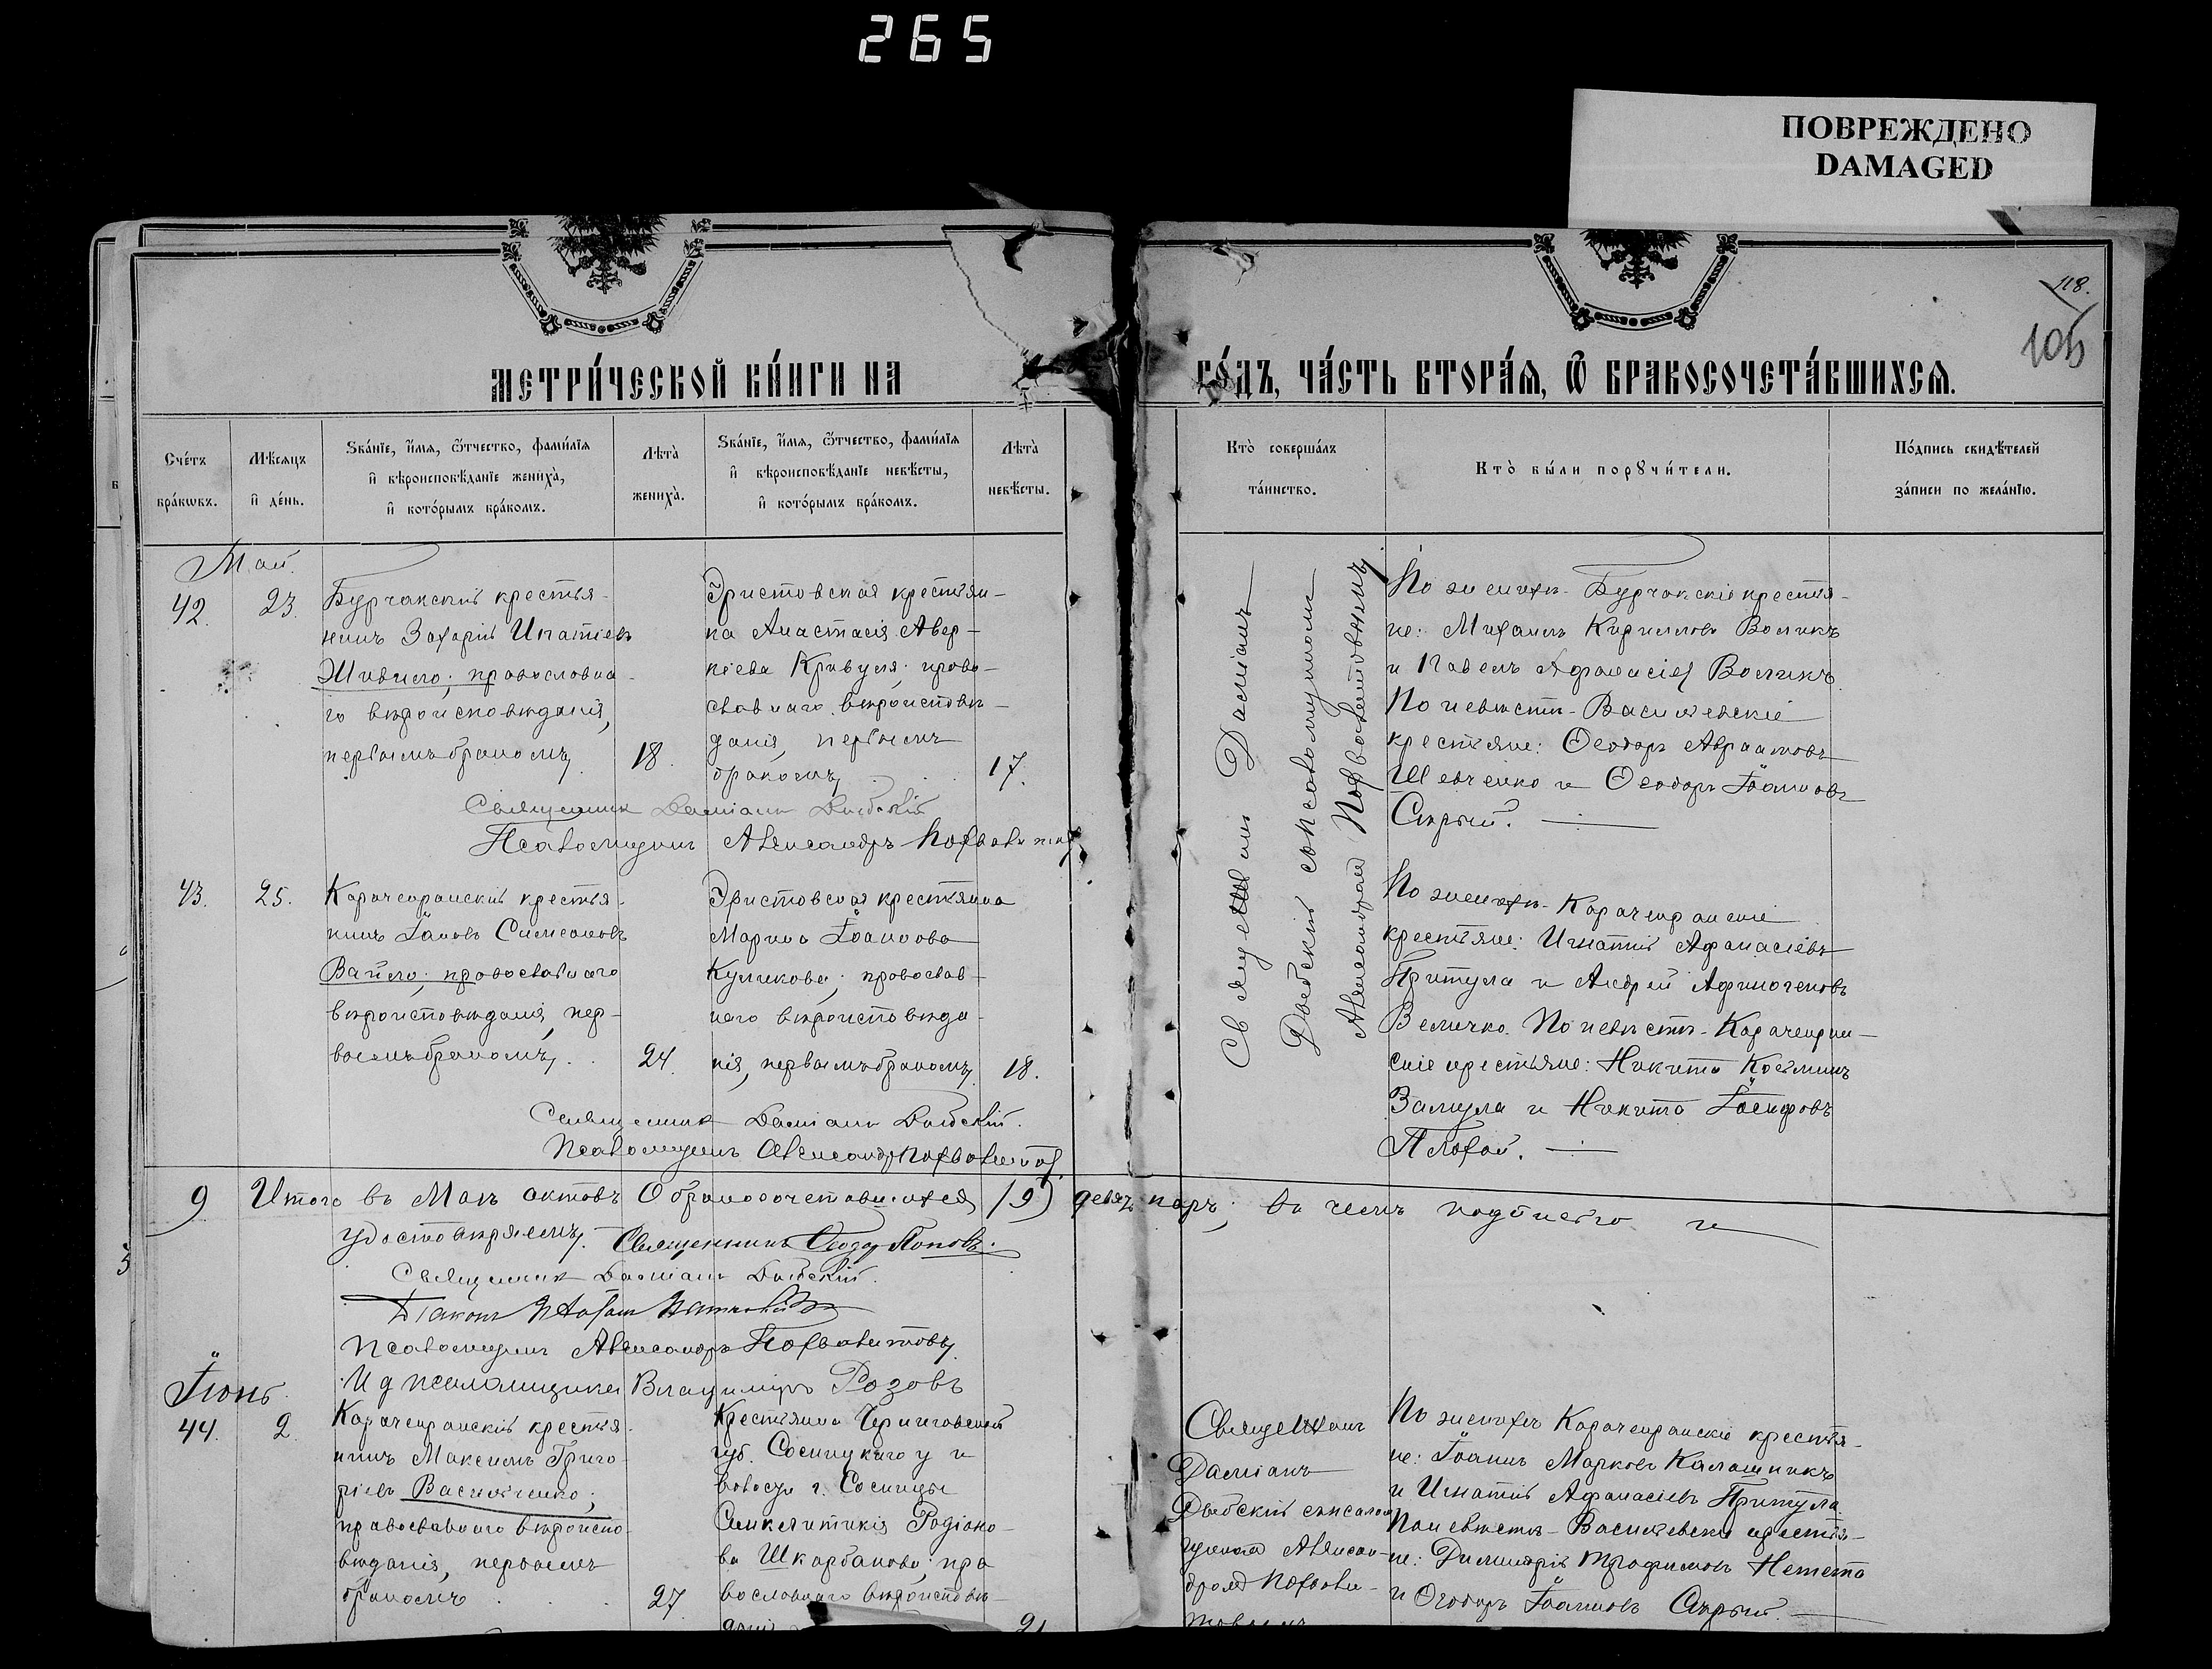 265
ПОВРЕЖДЕНО
DAMAGED
118.
105
МЕТРИ́ЧЕСКОЙ КНИ́ГИ НА
ГО́ДЪ, ЧА́СТЬ ВТОРА́Ѧ, Ѽ БРАКОСОЧЕТА́ВШИХСѦ.
Сче́тъ бра́кѡвъ.
Мѣ́сѧцъ и҆ де́нь.
Ѕва́нїе, и҆́мѧ, ѻ҆́тчество, фами́лїѧ
и҆ вѣроисповѣ́данїе жениха̀,
и҆ кото́рымъ бра́комъ.
Лѣта̀ жениха̀.
Ѕва́нїе, и҆́мѧ, ѻ҆́тчество, фами́лїѧ
и҆ вѣроисповѣ́данїе невѣ́сты,
и҆ кото́рымъ бра́комъ.
Лѣта̀ невѣ́сты.
Кто̀ соверша́лъ та́инство.
Кто̀ бы́ли порꙋчи́тели.
По́дпись свидѣ́телей за́писи по жела́нїю.
Май.
42.
23.
Бурчакскій крестья-
нинъ Захарій Игнатіевъ
Живило; православна-
го вѣроисповѣданія,
первымъ бракомъ.
18.
Эристовская крестьян-
ка Анастасія Авер-
кіева Кривуля; право-
славнаго вѣроисповѣ-
данія, первымъ
бракомъ.
17.
Священникъ Даміанъ
Дыбскій съ псаломщикомъ
Александромъ Похвалитовымъ
По женихѣ - Бурчакскіе крестья-
не: Михаилъ Кирилловъ Воликъ
и Павелъ Афанасіев Воликъ.
По невѣстѣ - Васильевскіе
крестьяне: Ѳеодоръ Авраамовъ
Шевченко и Ѳеодоръ Іоанновъ
Скрый.
Священникъ Даміанъ Дыбскій
Псаломщикъ Александръ Похвалитов
43.
25.
Карачекракскій крестья-
нинъ Іаковъ Симеоновъ
Вайло; православнаго
вѣроисповѣданія, пер-
вымъ бракомъ.
24.
Эристовская крестьянка
Марина Іоаннова
Куликова; православ-
наго вѣроисповѣда-
нія, первымъ бракомъ.
18.
По женихѣ - Карачекракскіе
крестьяне: Игнатій Афанасіевъ
Притула и Андрей Афиногеновъ
Величко. По невѣстѣ - Карачекрак-
скіе крестьяне: Никита Косминъ
Замула и Никита Іосифовъ
Плохой.
Священникъ Даміанъ Дыбскій.
Псаломщикъ Александръ Похвалитов
9 Итого въ Маѣ актовъ О бракосочетавшихся (9) девять паръ; въ чемъ подписью и
удостовѣряемъ. Священникъ Ѳеодор Поповъ.
Священникъ Даміанъ Дыбскій.
Діаконъ
Псаломщикъ Александръ Похвалитовъ.
И д псаломщика Владиміръ Розовъ
Іюнь.
44.
2
Карачекракскій крестья-
нинъ Максимъ Григо-
ріевъ Васильченко;
православнаго вѣроиспо-
вѣданія, первымъ
бракомъ
27
Крестьянка Черниговской
губ. Сосницкаго у и
волости г. Сосницы
Синклитикія Родіоно-
ва Шкарбанова; пра-
вославнаго вѣроисповѣ-
дані
21
Священникъ
Даміанъ
Дыбскій съ псалом-
щикомъ Алексан-
дромъ Похвали-
товымъ
По женихѣ Карачекракскіе крестья-
не: Іоаннъ Марковъ Калашникъ
и Игнатій Афанасіевъ Притула
По невѣстѣ - Васильевскіе крестья-
не: Димитрій Трофимовъ Нетета
и Ѳеодоръ Іоанновъ Скрый.